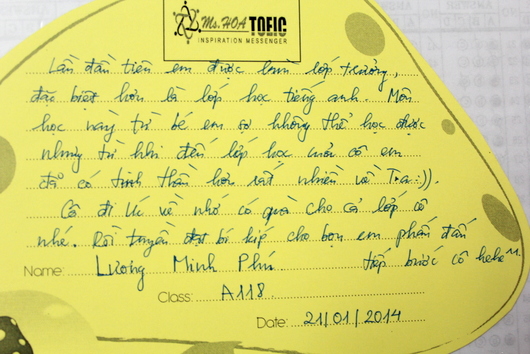 Ms. HOA TOEIC
INSPIRATION MESSENGER
Lần đầu tiên em được làm lớp trưởng,
đặc biệt hơn là lớp học tiếng anh. Môn
học này từ bé em sợ không thể học được
nhưng từ khi đến lớp học của cô em
đã có tinh thần hơn rất nhiều về Tra:)).
Cô đi Úc về nhớ có quà cho cả lớp cô
nhé. Rồi truyền đạt bí kíp cho bọn em phấn đấu
tiếp bước cô hehe^^.
Name: Lương Minh Phú
Class: A118.
Date: 21/01/2014